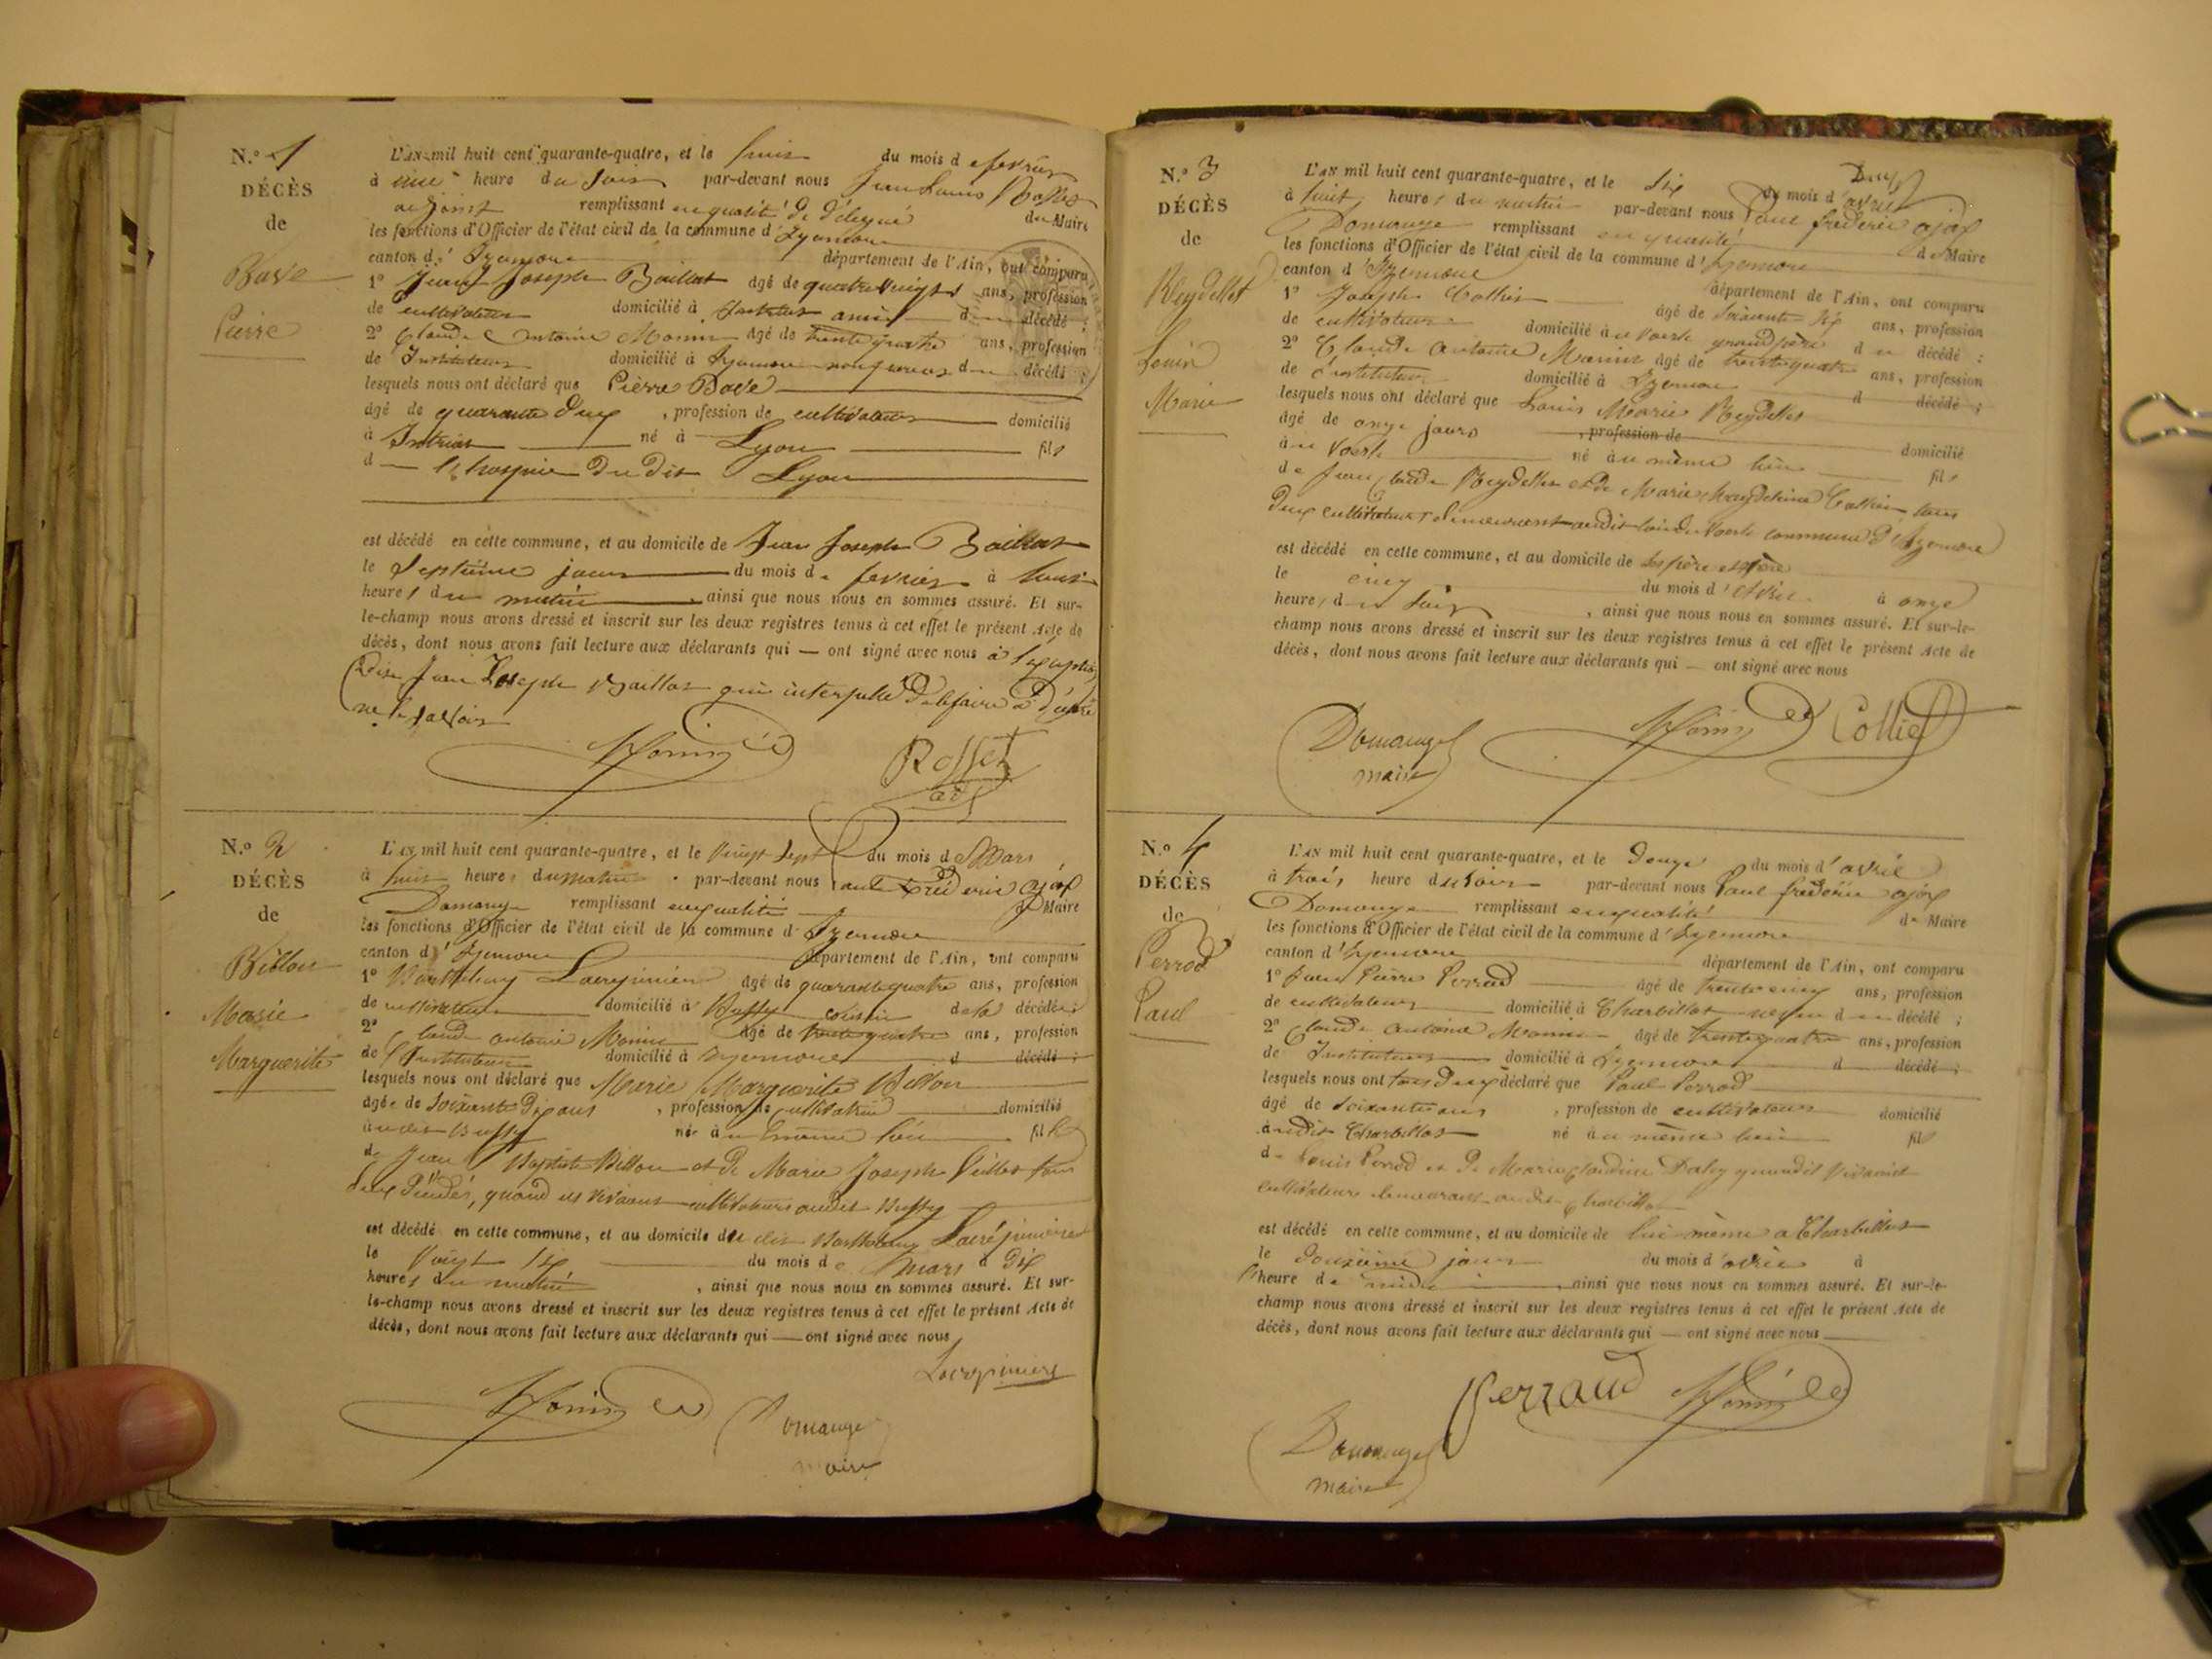 N.º 1
DÉCÈS
de
Bavé
Pierre
L'AN mil huit cent quarante-quatre, et le huit du mois de février
à une heure du soir par-devant nous Jean Louis Rosset
adjoint remplissant en qualité de délégué du Maire
les fonctions d'Officier de l'état civil de la commune d'Izernore
canton d'Izernore département de l'Ain, ont comparu
1º Jean Joseph Baillat âgé de quatre vingts ans, profession
de cultivateur domicilié à Intriat ami du décédé ;
2º Claude Antoine Monin âgé de trente quatre ans, profession
de Instituteur domicilié à Izernore non parent du décédé ;
lesquels nous ont déclaré que Pierre Bavé
âgé de quarante deux, profession de cultivateur domicilié
à Intriat né à Lyon fils
d l'hospice du dit Lyon
est décédé en cette commune, et au domicile de Jean Joseph Baillat
le septième jour du mois de février à huit
heures du matin, ainsi que nous nous en sommes assuré. Et sur-
le-champ nous avons dressé et inscrit sur les deux registres tenus à cet effet le présent Acte de
décès, dont nous avons fait lecture aux déclarants qui — ont signé avec nous à l'exception
dudit Jean Joseph Baillat qui interpellé de le faire a déclaré
ne le savoir
Monin Rosset
adj
N.º 2
DÉCÈS
de
Billon
Marie
Marguerite
L'AN mil huit cent quarante-quatre, et le vingt sept du mois de Mars
à huit heures du matin par-devant nous Paul Fréderic ajax
Domange remplissant en qualité de Maire
les fonctions d'Officier de l'état civil de la commune d'Izernore
canton d'Izernore département de l'Ain, ont comparu
1º Barthelemy Lacrepinière âgé de quarante quatre ans, profession
de cultivateur domicilié à Bussy cousin de la décédée ;
2º Claude antoine Monin âgé de trente quatre ans, profession
de Instituteur domicilié à Izernore d décédé ;
lesquels nous ont déclaré que Marie Marguerite Billon
âgée de soixante dix ans, profession de cultivatrice domicilié
au dit Bussy née au même lieu fille
de Jean Baptiste Billon et de Marie Joseph tous
deux décédés, quand ils vivaient cultivateurs audit Bussy
est décédé en cette commune, et au domicile du dit Barthelemy Lacrépinière
le vingt six du mois de Mars à dix
heures du matin, ainsi que nous nous en sommes assuré. Et sur-
le-champ nous avons dressé et inscrit sur les deux registres tenus à cet effet le présent Acte de
décès, dont nous avons fait lecture aux déclarants qui — ont signé avec nous
Lacrepiniere
Monin Domange
maire
N.º 3
DÉCÈS
de
Reydellet
Louis
Marie
L'AN mil huit cent quarante-quatre, et le six du mois d'avril
à huit heures du matin par-devant nous Paul frederic ajax
Domange remplissant en qualité de Maire
les fonctions d'Officier de l'état civil de la commune d'Izernore
canton d'Izernore département de l'Ain, ont comparu
1º Joseph Collet âgé de soixante six ans, profession
de cultivateur domicilié au Voerle grand père du décédé ;
2º Claude Antoine Monin âgé de trente quatre ans, profession
de Instituteur domicilié à Izernore d décédé ;
lesquels nous ont déclaré que Louis Marie Reydellet
âgé de onze jours, profession de domicilié
au Voerle né au même lieu fils
de Jean Claude Reydellet et de Marie Magdeleine tous
deux cultivateurs demeurant audit lieu du Voerle commune d'Izernore
est décédé en cette commune, et au domicile de ses père et mère
le cinq du mois d'avril à onze
heures du soir, ainsi que nous nous en sommes assuré. Et sur-le-
champ nous avons dressé et inscrit sur les deux registres tenus à cet effet le présent Acte de
décès, dont nous avons fait lecture aux déclarants qui — ont signé avec nous
Domange Monin Collet
maire
N.º 4
DÉCÈS
de
Perrod
Paul
L'AN mil huit cent quarante-quatre, et le douze du mois d'avril
à trois heure du soir par-devant nous Paul frederic ajax
Domange remplissant en qualité de Maire
les fonctions d'Officier de l'état civil de la commune d'Izernore
canton d'Izernore département de l'Ain, ont comparu
1º Jean Pierre Perrod âgé de trente cinq ans, profession
de cultivateur domicilié à Charbillat neveu du décédé ;
2º Claude antoine Monin âgé de trente quatre ans, profession
de Instituteur domicilié à Izernore d décédé ;
lesquels nous ont tous deux déclaré que Paul Perrod
âgé de soixante ans, profession de cultivateur domicilié
audit Charbillat né au même lieu fils
de Louis Perrod et de Marie Claudine quand il vivaient
cultivateurs demeurant au dit Charbillat
est décédé en cette commune, et au domicile de lui-même à Charbillat
le douzième jour du mois d'avril à
l'heure de midi, ainsi que nous nous en sommes assuré. Et sur-le-
champ nous avons dressé et inscrit sur les deux registres tenus à cet effet le présent Acte de
décès, dont nous avons fait lecture aux déclarants qui — ont signé avec nous
Perraud Monin
Domange
maire